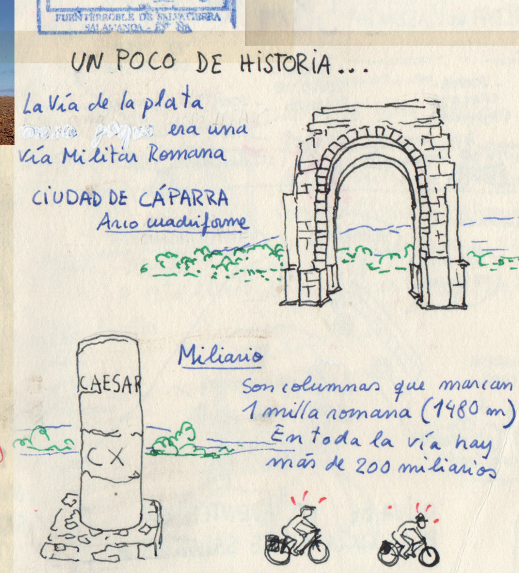 FUENTERROBLE DE SALVATIERRA
SALAMANCA
UN POCO DE HISTORIA...
La Vía de la plata
era una
vía Militar Romana
CIUDAD DE CÁPARRA
Arco cuadriforme
Miliario
CAESAR
CX
Son columnas que marcan
1 milla romana (1480 m)
En toda la vía hay
más de 200 miliarios